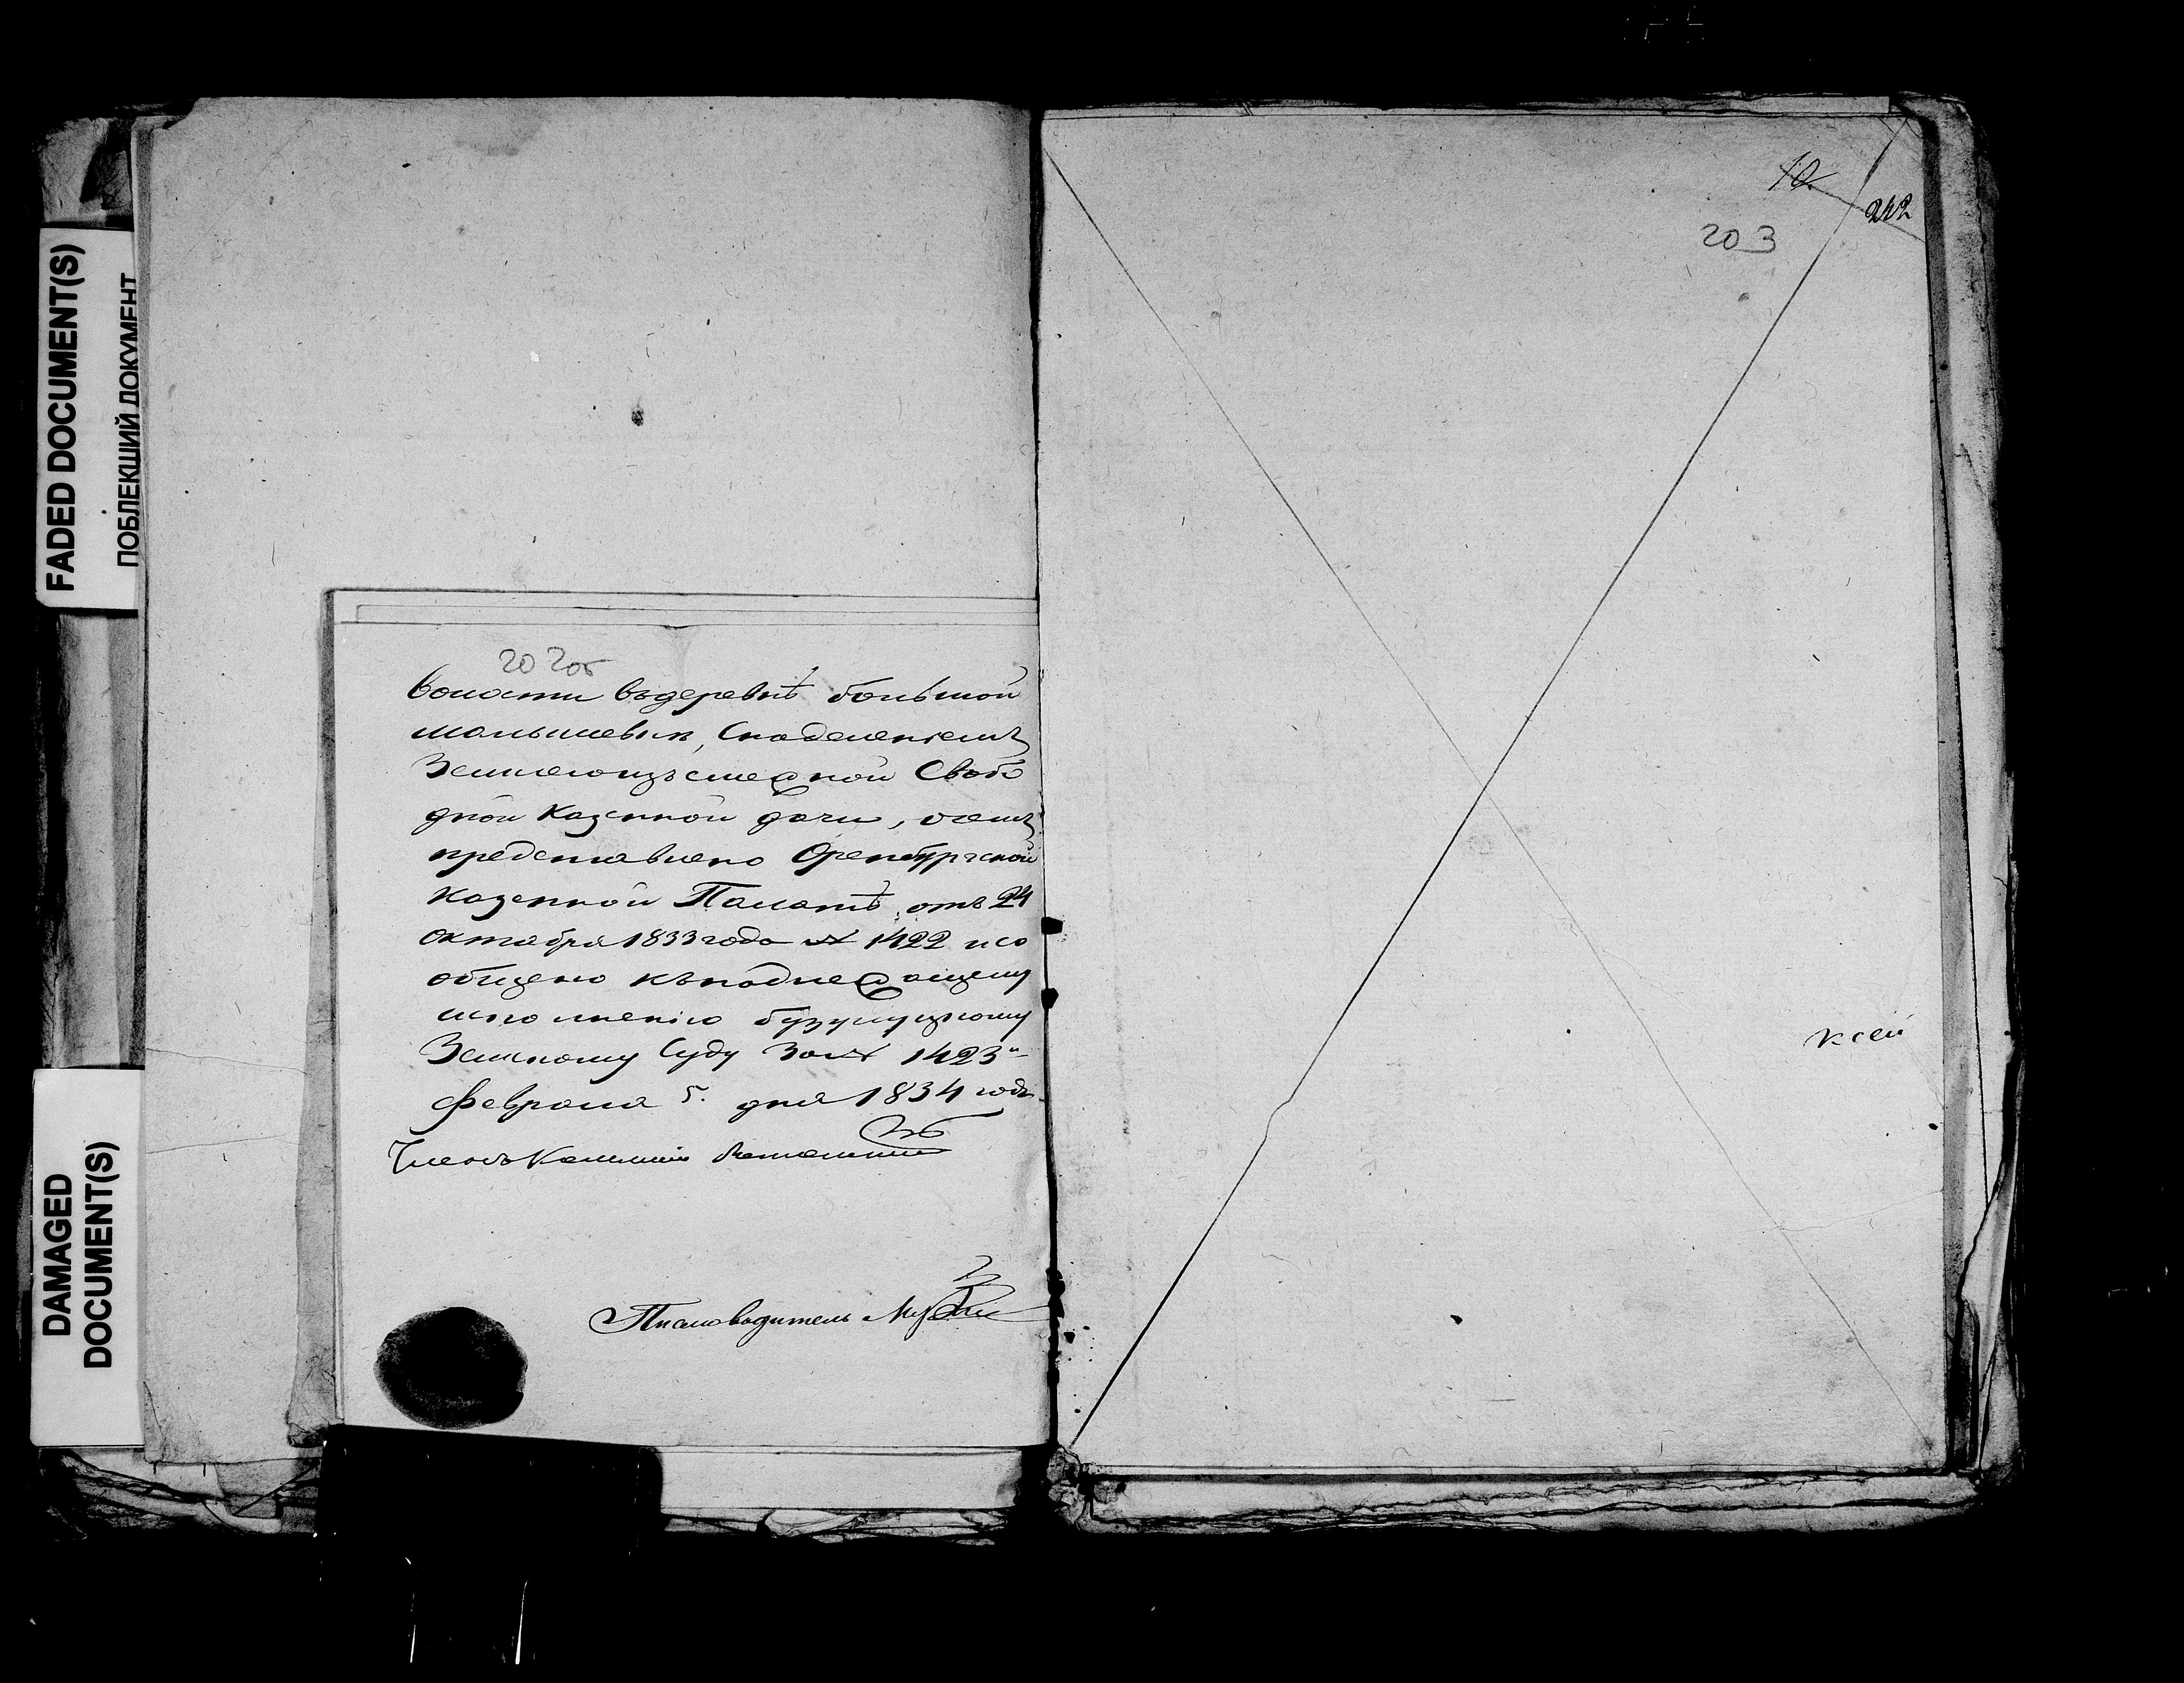 FADED DOCUMENT(S)
ПОБЛЕКШИЙ ДОКУМЕНТ
DAMAGED
DOCUMENT(S)
202об
волости въдеревнѣ большой
малышевки, Снаделенiемъ
Землеюизъсмежной Свобо
дной Казенной дачи, очемъ
представлено Оренбургской
Казенной Палатѣ, отъ 24
Октября 1833 года № 1422 исо
общено кънадлежащему
исполненiю бузулуцкому
Земскому Суду За№ 1423й
Февраля 5. дня 1834 года
Членъ Комиссiи
Письмоводитель
10
242
203
ксей